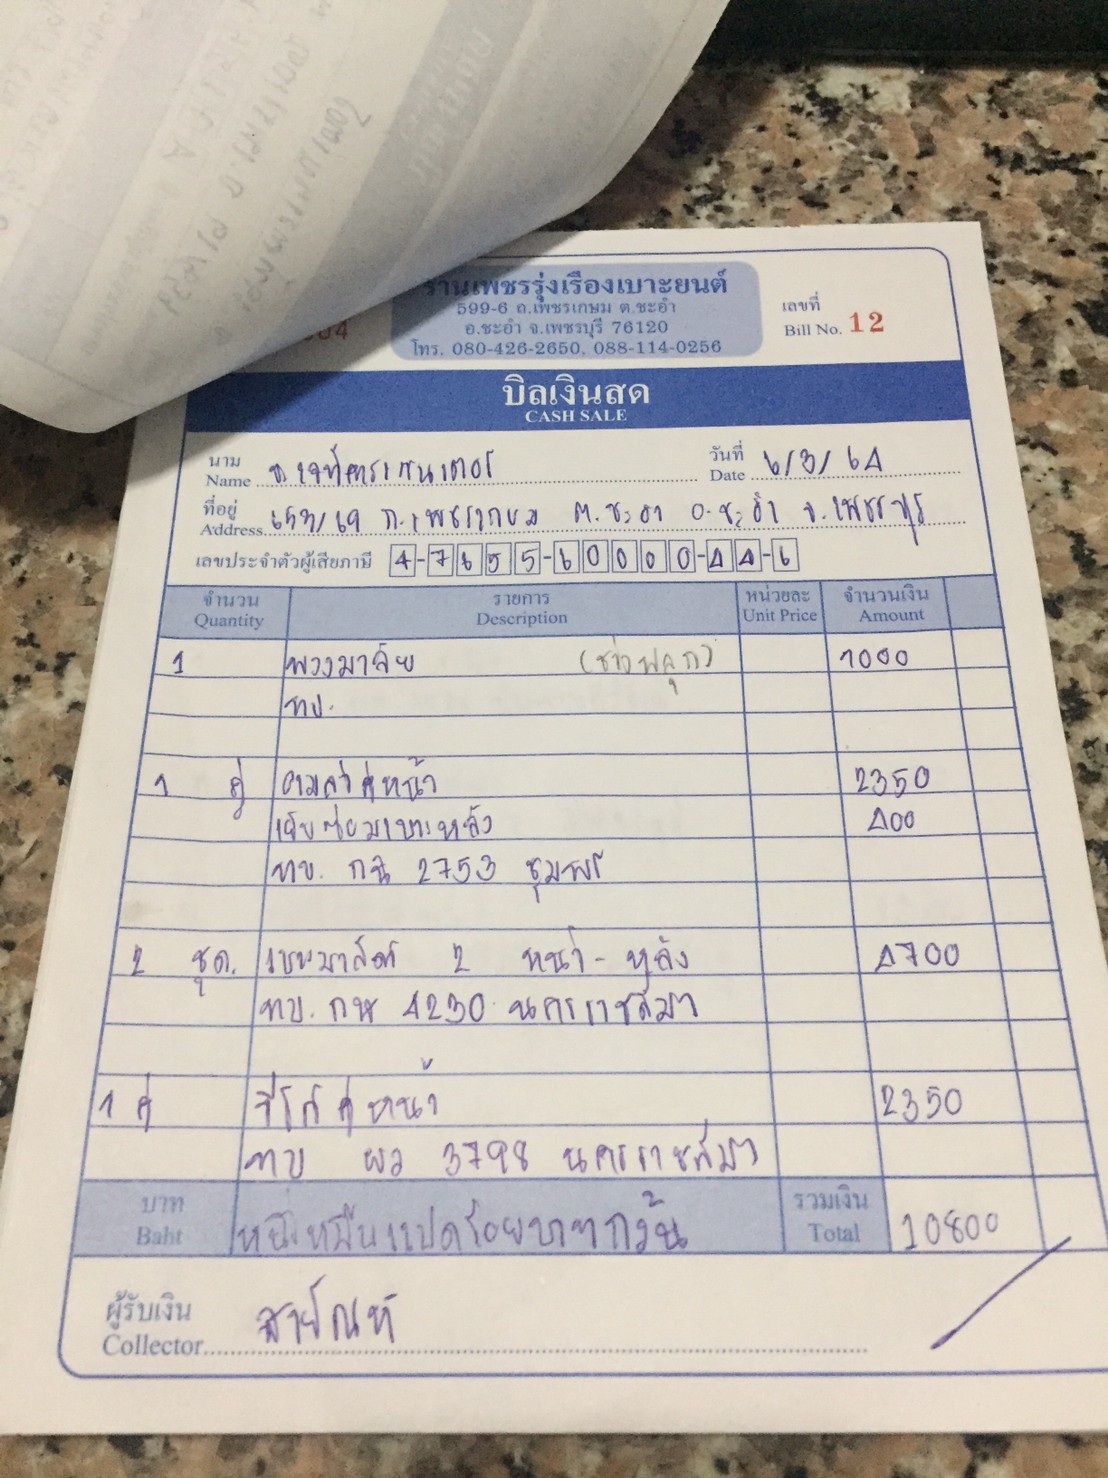 ร้านเพชรรุ่งเรืองเบาะยนต์
599-6 ถ.เพชรเกษม ต.ชะอำ
อ.ชะอำ จ.เพชรบุรี 76120
โทร. 080-426-2650, 088-114-0256
เลขที่
Bill No. 12
บิลเงินสด
CASH SALE
นาม
Name
วันที่
Date 6/3/64
ที่อยู่
Address 653/69 ถ.เพชรเกษม ต.ชะอำ อ.ชะอำ จ.เพชรบุรี
เลขประจำตัวผู้เสียภาษี 4-7655-60000-44-6
จำนวน รายการ หน่วยละ จำนวนเงิน
Quantity Description Unit Price Amount
1 พวงมาลัย 1000
ทบ.
1 คู่ คู่หน้า 2350
เย็บซ่อมเบาะหลัง 400
ทบ. 2753 ชุมพร
2 ชุด. 2 หน้า - หลัง 4700
ทบ. กห 4230 นครราชสีมา
1 คู่ คู่หน้า 2350
ทบ ผว 3798 นครราชสีมา
บาท
Baht หนึ่งหมื่นแปดร้อยบาทถ้วน
รวมเงิน
Total 10800
ผู้รับเงิน
Collector สายัณห์